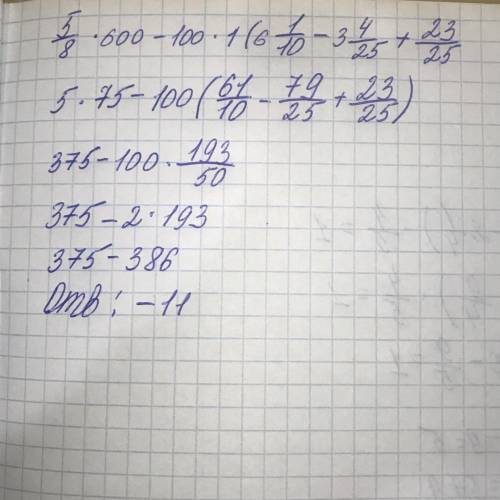 5/8 · 600 - 100 · 1 (6 1/10 - 3 4/25 + 23/25
5 · 75 - 100 (61/10 - 79/25 + 23/25)
375 - 100 · 193/50
375 - 2 · 193
375 - 386
Отв: -11